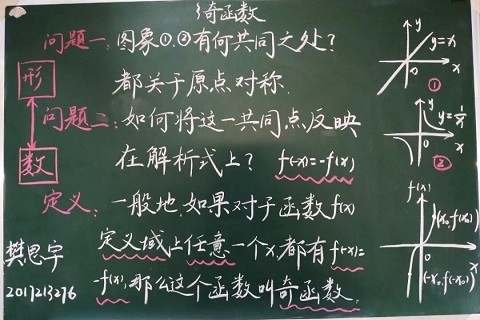 奇函数
问题一:图象①.②有何共同之处?
形
都关于原点对称.
问题二:如何将这一共同点反映
数
在解析式上? f(-x)=-f(x)
定义:一般地,如果对于函数f(x)
定义域上任意一个x,都有f(-x)=
-f(x),那么这个函数叫奇函数.
樊思宇
2017213276
y
y=x
x
①
y
y=1/x
x
②
f(x)
(x₀,f(x₀))
x
(-x₀,f(-x₀))